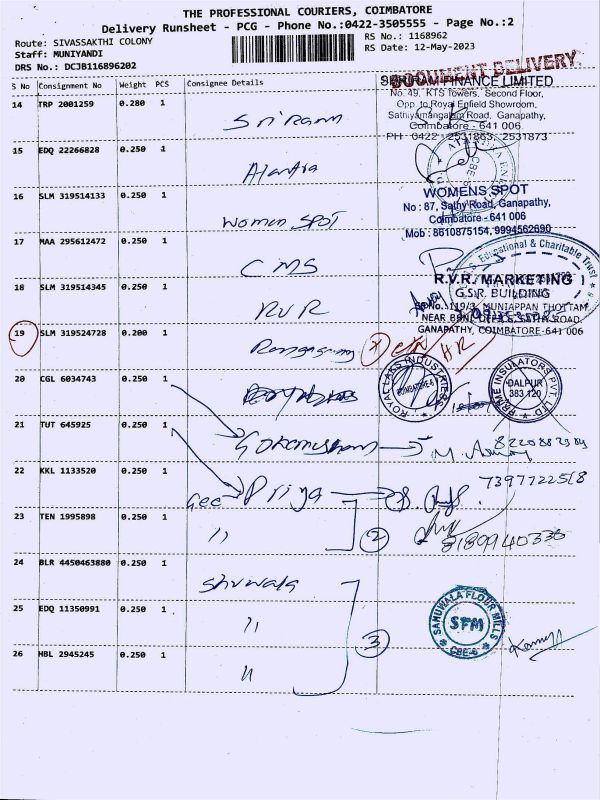 THE PROFESSIONAL COURIERS, COIMBATORE
Delivery Runsheet - PCG - Phone No.:0422-3505555 - Page No.:2
Route: SIVASSAKTHI COLONY
Staff: MUNIYANDI
DRS No.: DCJB116896202
RS No.: 1168962
RS Date: 12-May-2023
DOCUMENT DELIVERY
S No Consignment No Weight PCS Consignee Details
14 TRP 2001259 0.280 1 Sri Ram
FINANCE LIMITED
No. 49, KTS Towers, Second Floor,
Opp. to Royal Enfield Showroom,
Sathyamangalam Road, Ganapathy,
Coimbatore - 641 006
PH : 0422 - 2531863, 2531873
15 EDQ 22266828 0.250 1
CBE-6
16 SLM 319514133 0.250 1 Women SPOT
WOMENS SPOT
No : 87, Sathy Road, Ganapathy,
Coimbatore - 641 006
Mob : 8610875154, 9994562690
17 MAA 295612472 0.250 1 CMS
Educational & Charitable Trust
18 SLM 319514345 0.250 1 RVR
R.V.R. MARKETING
G.S.R. BUILDING
No. 119/3, MUNIAPPAN THOTTAM
GANAPATHY, COIMBATORE-641 006
19 SLM 319524728 0.200 1
HR
20 CGL 6034743 0.250 1
COIMBATORE-6
PRIME INSULATORS PVT. LTD
DALPUR
383 120
21 TUT 645925 0.250 1
22 KKL 1133520 0.250 1 Gee Priya
7397722518
23 TEN 1995898 0.250 1 "
2
24 BLR 4450463880 0.250 1
25 EDQ 11350991 0.250 1 "
3
SAMUWALA FLOUR MILLS
SFM
CBE-6
26 HBL 2945245 0.250 1 "